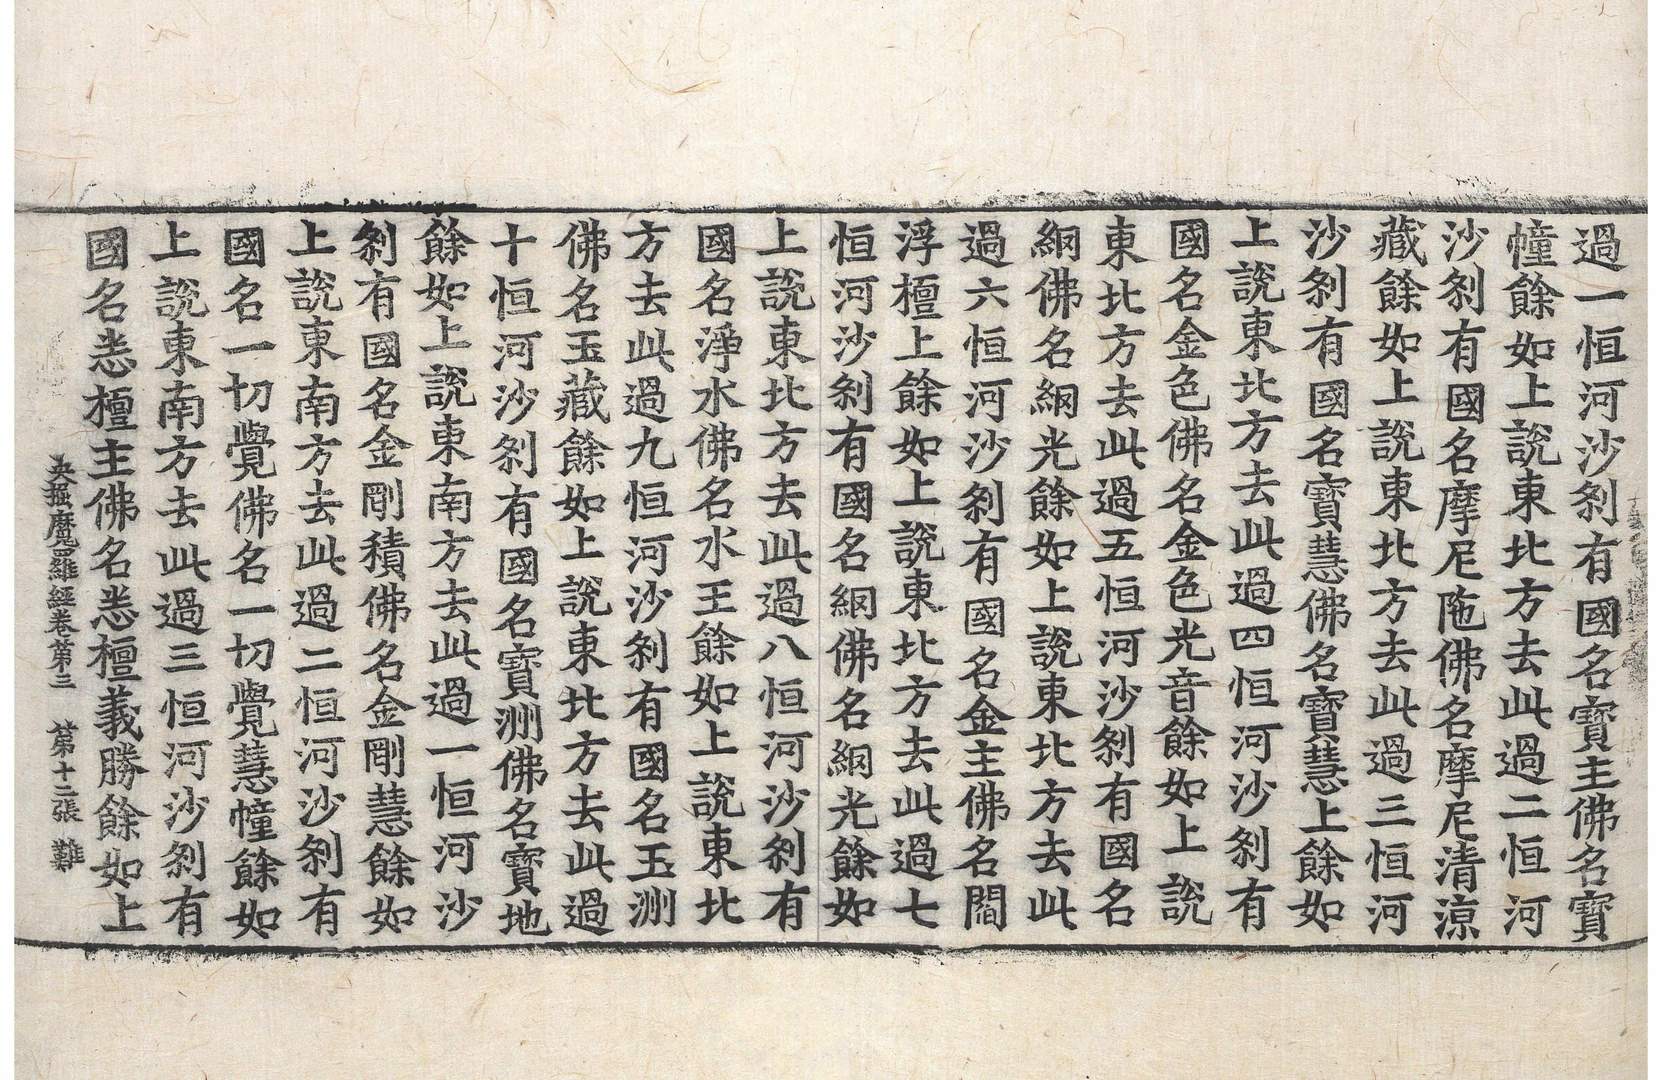 過一恒河沙刹有國名寶主佛名寶
幢餘如上說東北方去此過二恒河
沙刹有國名摩尼陁佛名摩尼清涼
藏餘如上說東北方去此過三恒河
沙刹有國名寶慧佛名寶慧上餘如
上說東北方去此過四恒河沙刹有
國名金色佛名金色光音餘如上說
東北方去此過五恒河沙刹有國名
網佛名網光餘如上說東北方去此
過六恒河沙刹有國名金主佛名閻
浮檀上餘如上說東北方去此過七
恒河沙刹有國名網佛名網光餘如
上說東北方去此過八恒河沙刹有
國名淨水佛名水王餘如上說東北
方去此過九恒河沙刹有國名玉洲
佛名玉藏餘如上說東北方去此過
十恒河沙刹有國名寶洲佛名寶地
餘如上說東南方去此過一恒河沙
刹有國名金剛積佛名金剛慧餘如
上說東南方去此過二恒河沙刹有
國名一切覺佛名一切覺慧幢餘如
上說東南方去此過三恒河沙刹有
國名悉檀主佛名悉檀義勝餘如上
央掘魔羅經卷第三 第十二張 難